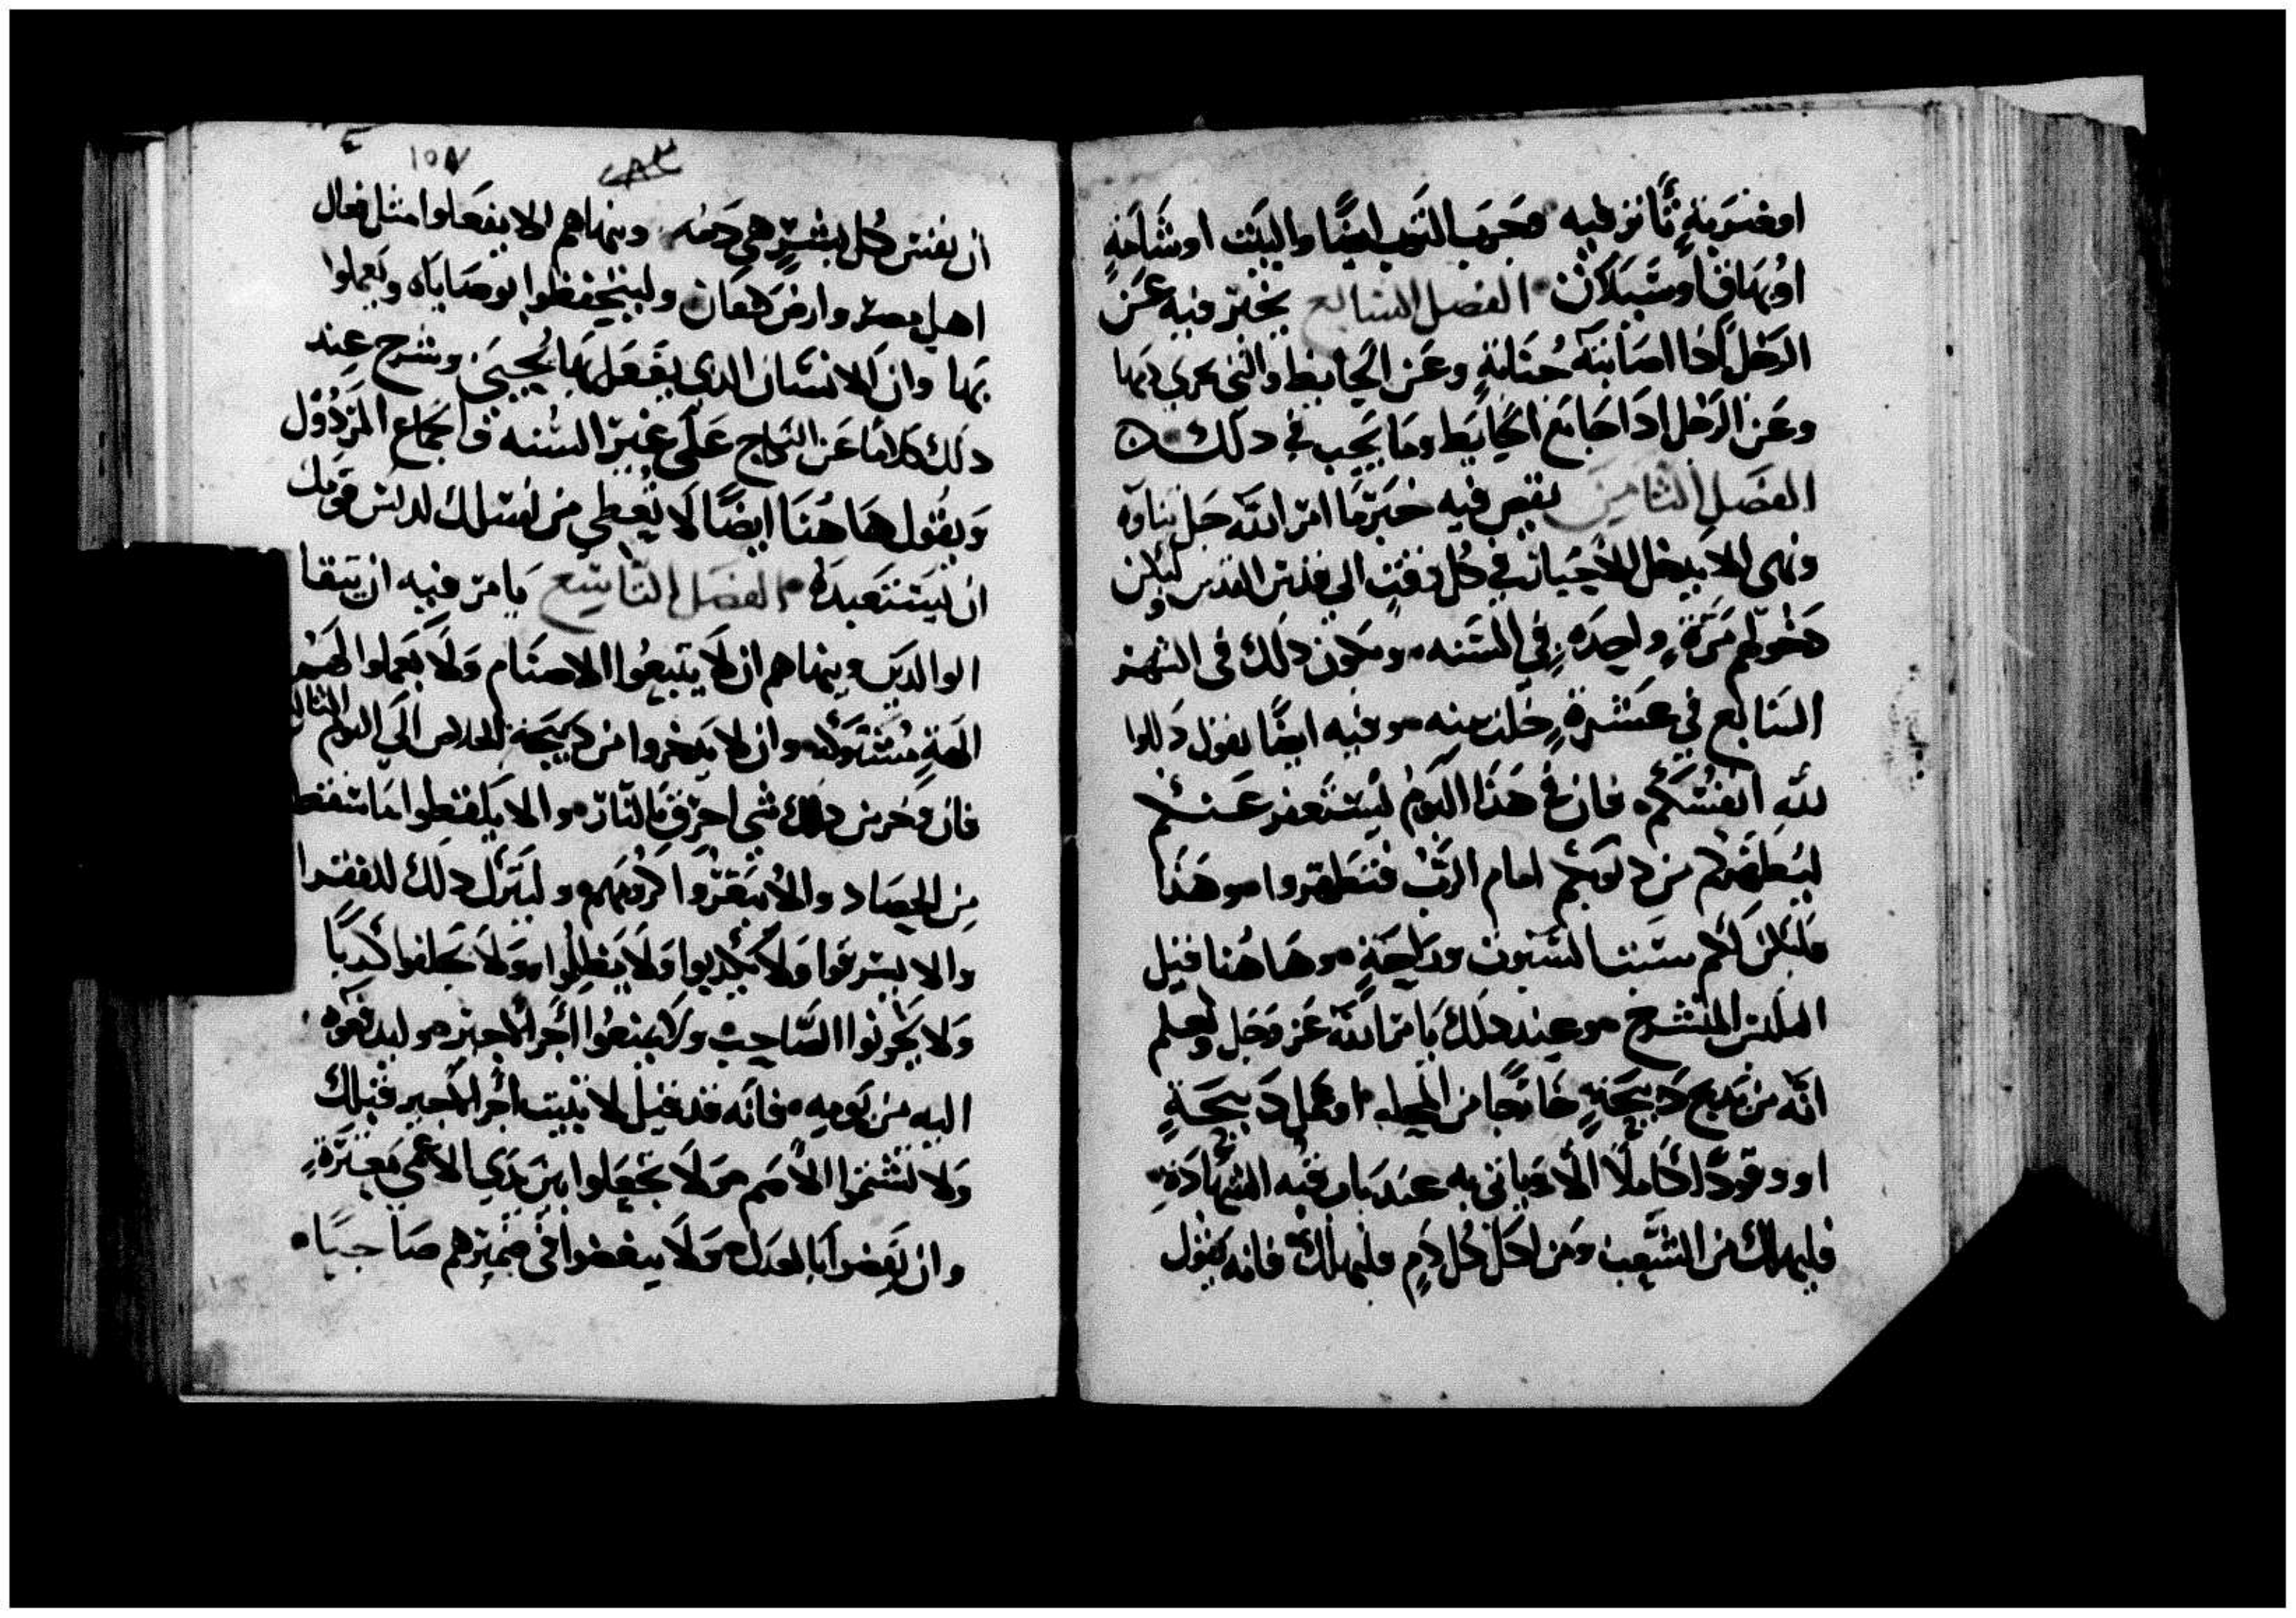 او ضربة ثانز فيه وجرب الثوب ايضا والبيت او شامة
او بهاق او سيلان الفصل السابع يخبر فيه عن
الرجل اذا اصابته جنابة وعن الحايط والتي يجري دمها
وعن الرجل اذا جامع الحايط وما يجب في دلك
الفصل الثامن يقص فيه خبر ما امر الله جل ثناوه
ونهى الا يدخل الاحبار في كل وقت الي قدس القدس وليكن
دخولهم مرة واحده في السنه ويكون دلك في الشهر
السابع في عشرة خلت منه وفيه ايضا يقول دللوا
لله انفسكم فان في هذا اليوم ليستغفر عنكم
ليطهركم من دنوبكم امام الرب فتطهروا وهذا
فليكن لكم سبت السبوت وراحة وهاهنا قيل
الملبس المنشرح وعند دلك يامر الله عز وجل ويعلم
انه من يدبح دبيحة خارجا من المحله او عمل دبيحة
او وقودا كاملا الا وياتي به عند باب قبه الشهادة
فليهلك من الشعب ومن اكل كل دم فليهلك فانه يقول
١٥٧
ان نفس كل بشر هي دمه وينهاهم الا يفعلوا مثل فعال
اهل مصر وارض كنعان وليتحفظوا بوصاياه ويعملوا
بها وان الانسان الدي يفعلها يحيى وشرح عند
دلك كلاما عن الزواج على غير السنه في الجماع المردول
ويقول هاهنا ايضا لا يعطي من نسلك لدلس قومك
ان يستعبده الفصل التاسع يامر فيه ان يتقا
الوالدين وينهاهم ان لا يتبعوا الاصنام ولا يعملوا لهم
الهة مسبوكه وان لا يدخروا من دبيحة الخلاص الي اليوم الثالث
فان دخر من دلك شي احرق بالنار والا يلقطوا ما سقط
من الحصاد والا يبعزوا كرومهم وليترك دلك للفقرا
والا يسرقوا ولا يكدبوا ولا يبطلوا ولا يحلفوا كدبا
ولا يخونوا الصاحب ولا يمنعوا أجر الاجير وليدفعوه
اليه من يومه فانه قد قيل لا يبيت أجر الاجير قبلك
ولا تشتموا الاصم ولا تجعلوا بين يدي الاعمى معثرة
وان يقضوا بالعدل ولا يبغضوا في ضميرهم صاحبا